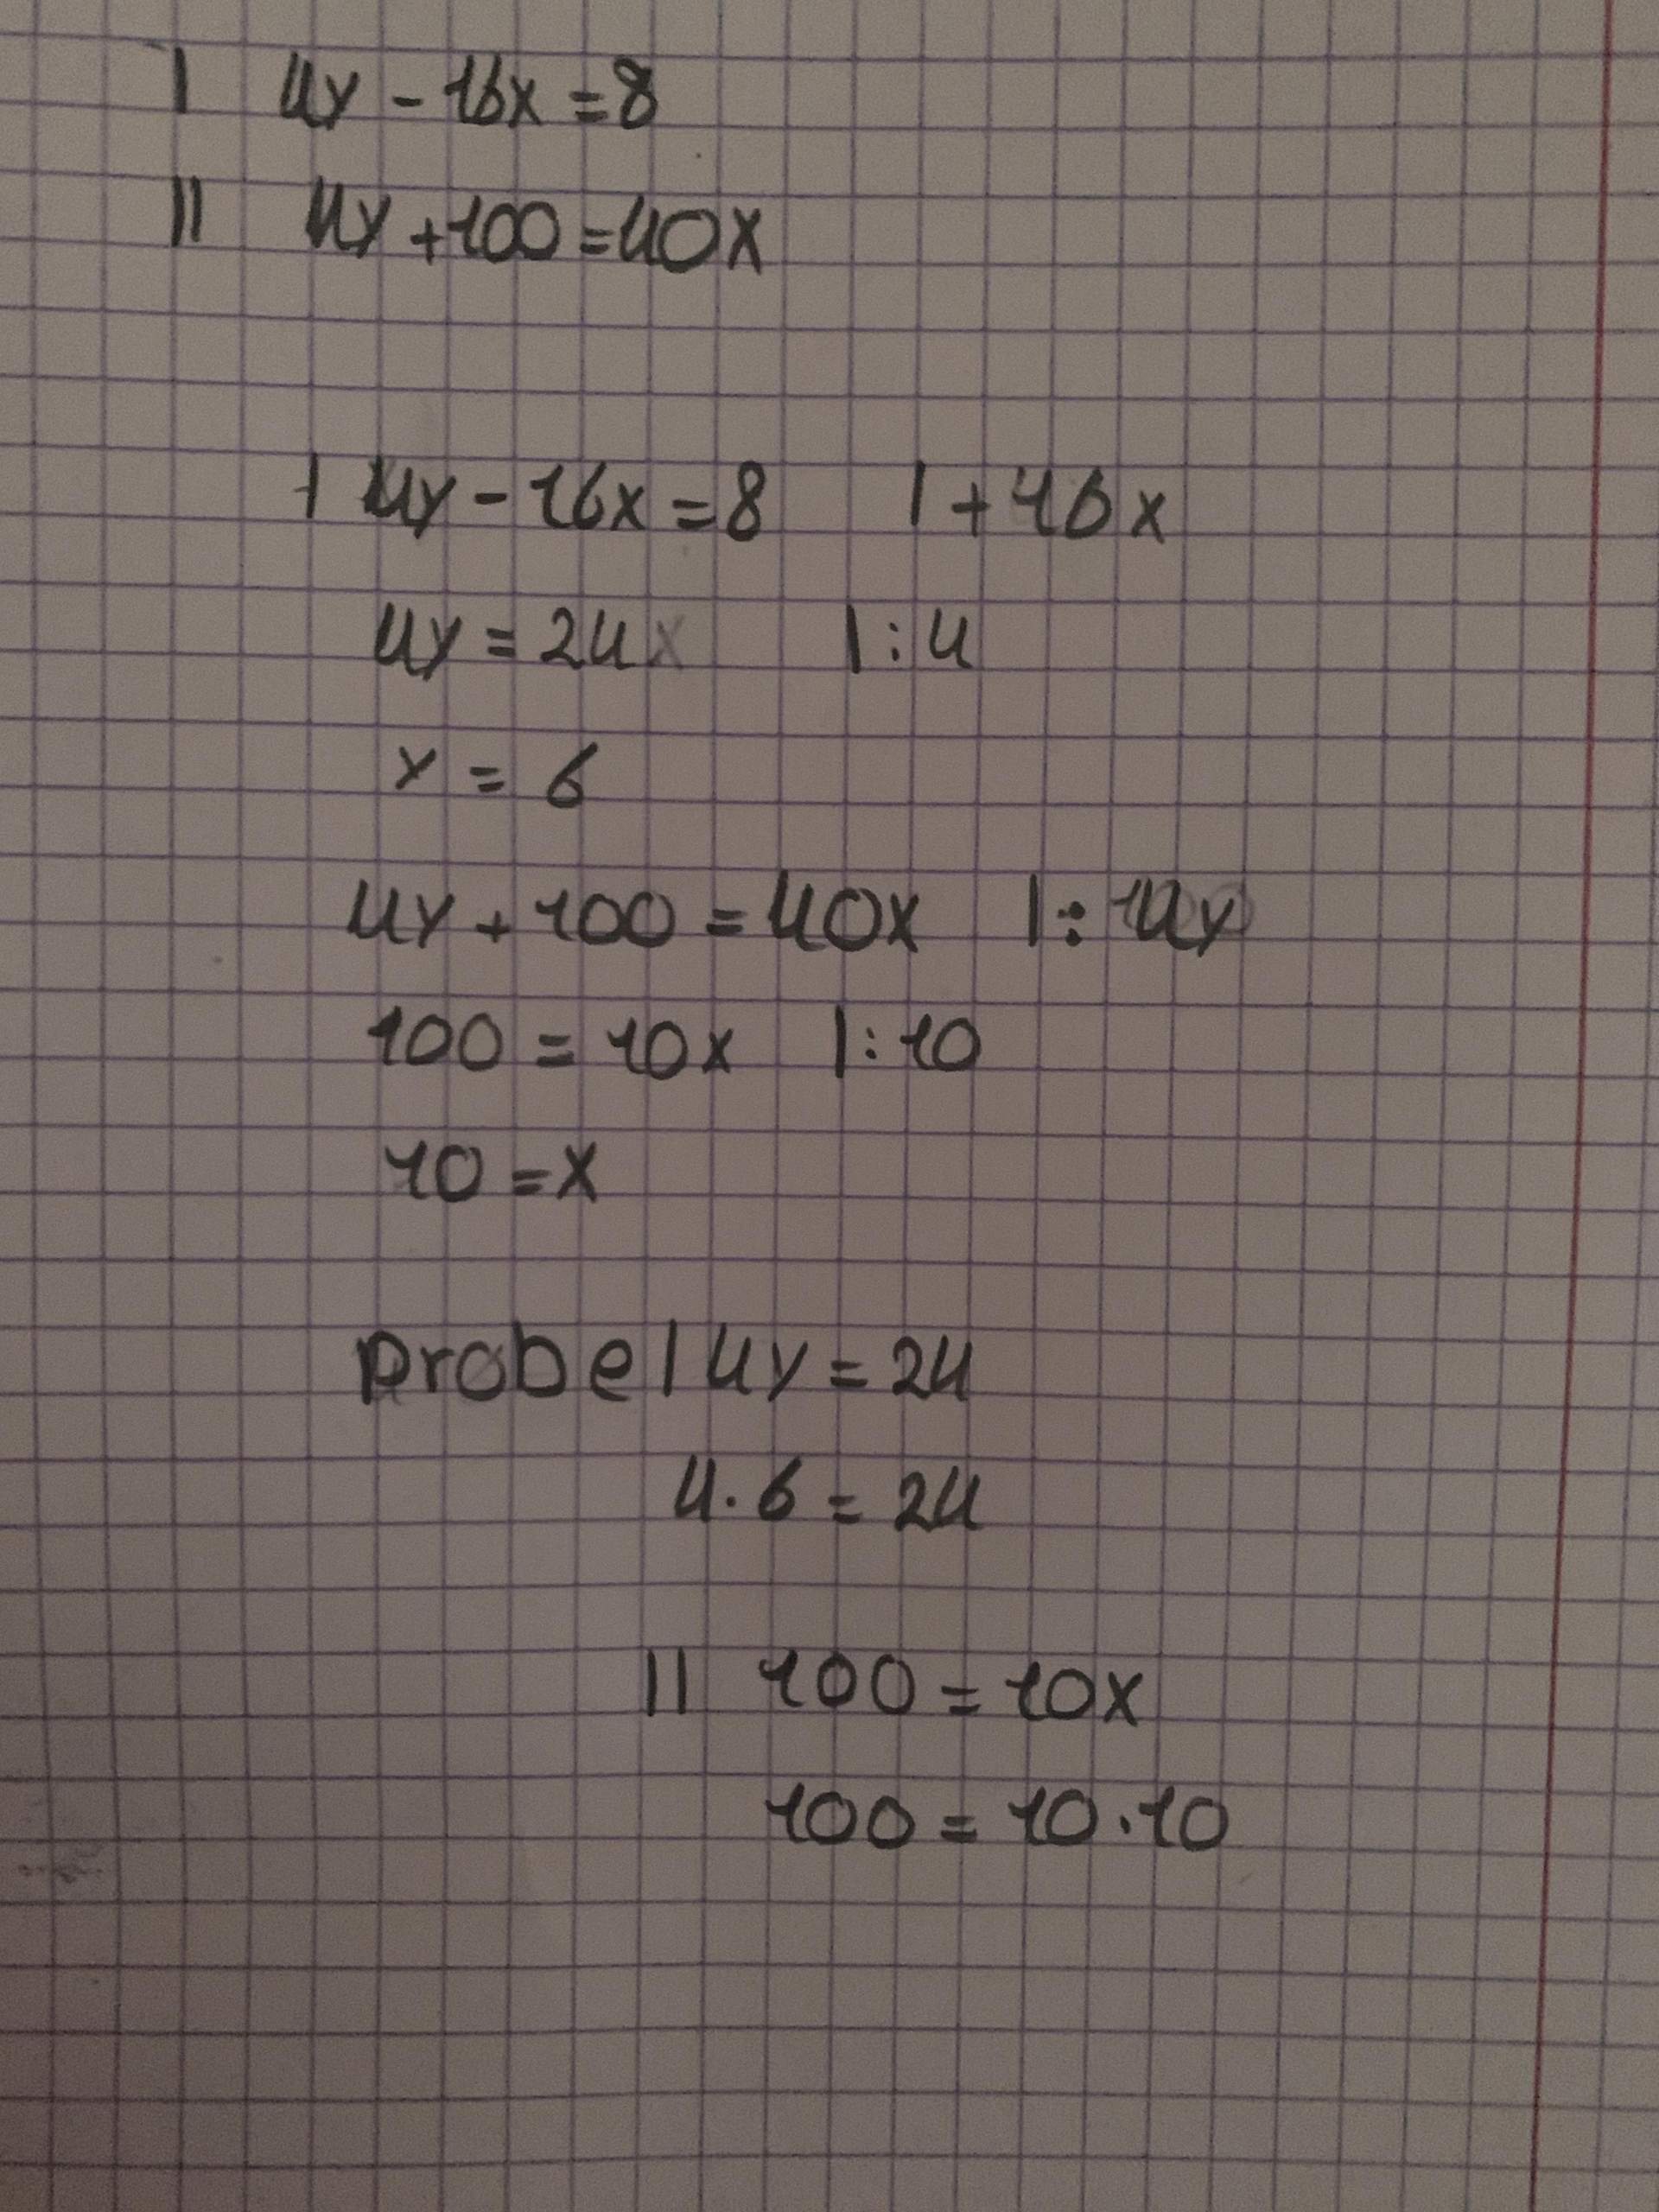 I 4y - 16x = 8
II 4y + 100 = 40x
I 4y - 16x = 8 | + 16x
4y = 24 | : 4
y = 6
4y + 100 = 40x | : 4y
100 = 10x | : 10
10 = x
probe I 4y = 24
4 · 6 = 24
II 100 = 10x
100 = 10 · 10